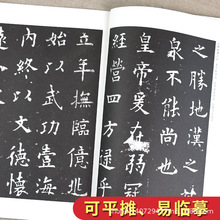 之勝地漢之
泉不能尚也
皇帝爰在弱
經營四方逮乎
立年撫臨億
始以武功壹海
內終以文德懷
可平摊 易临摹